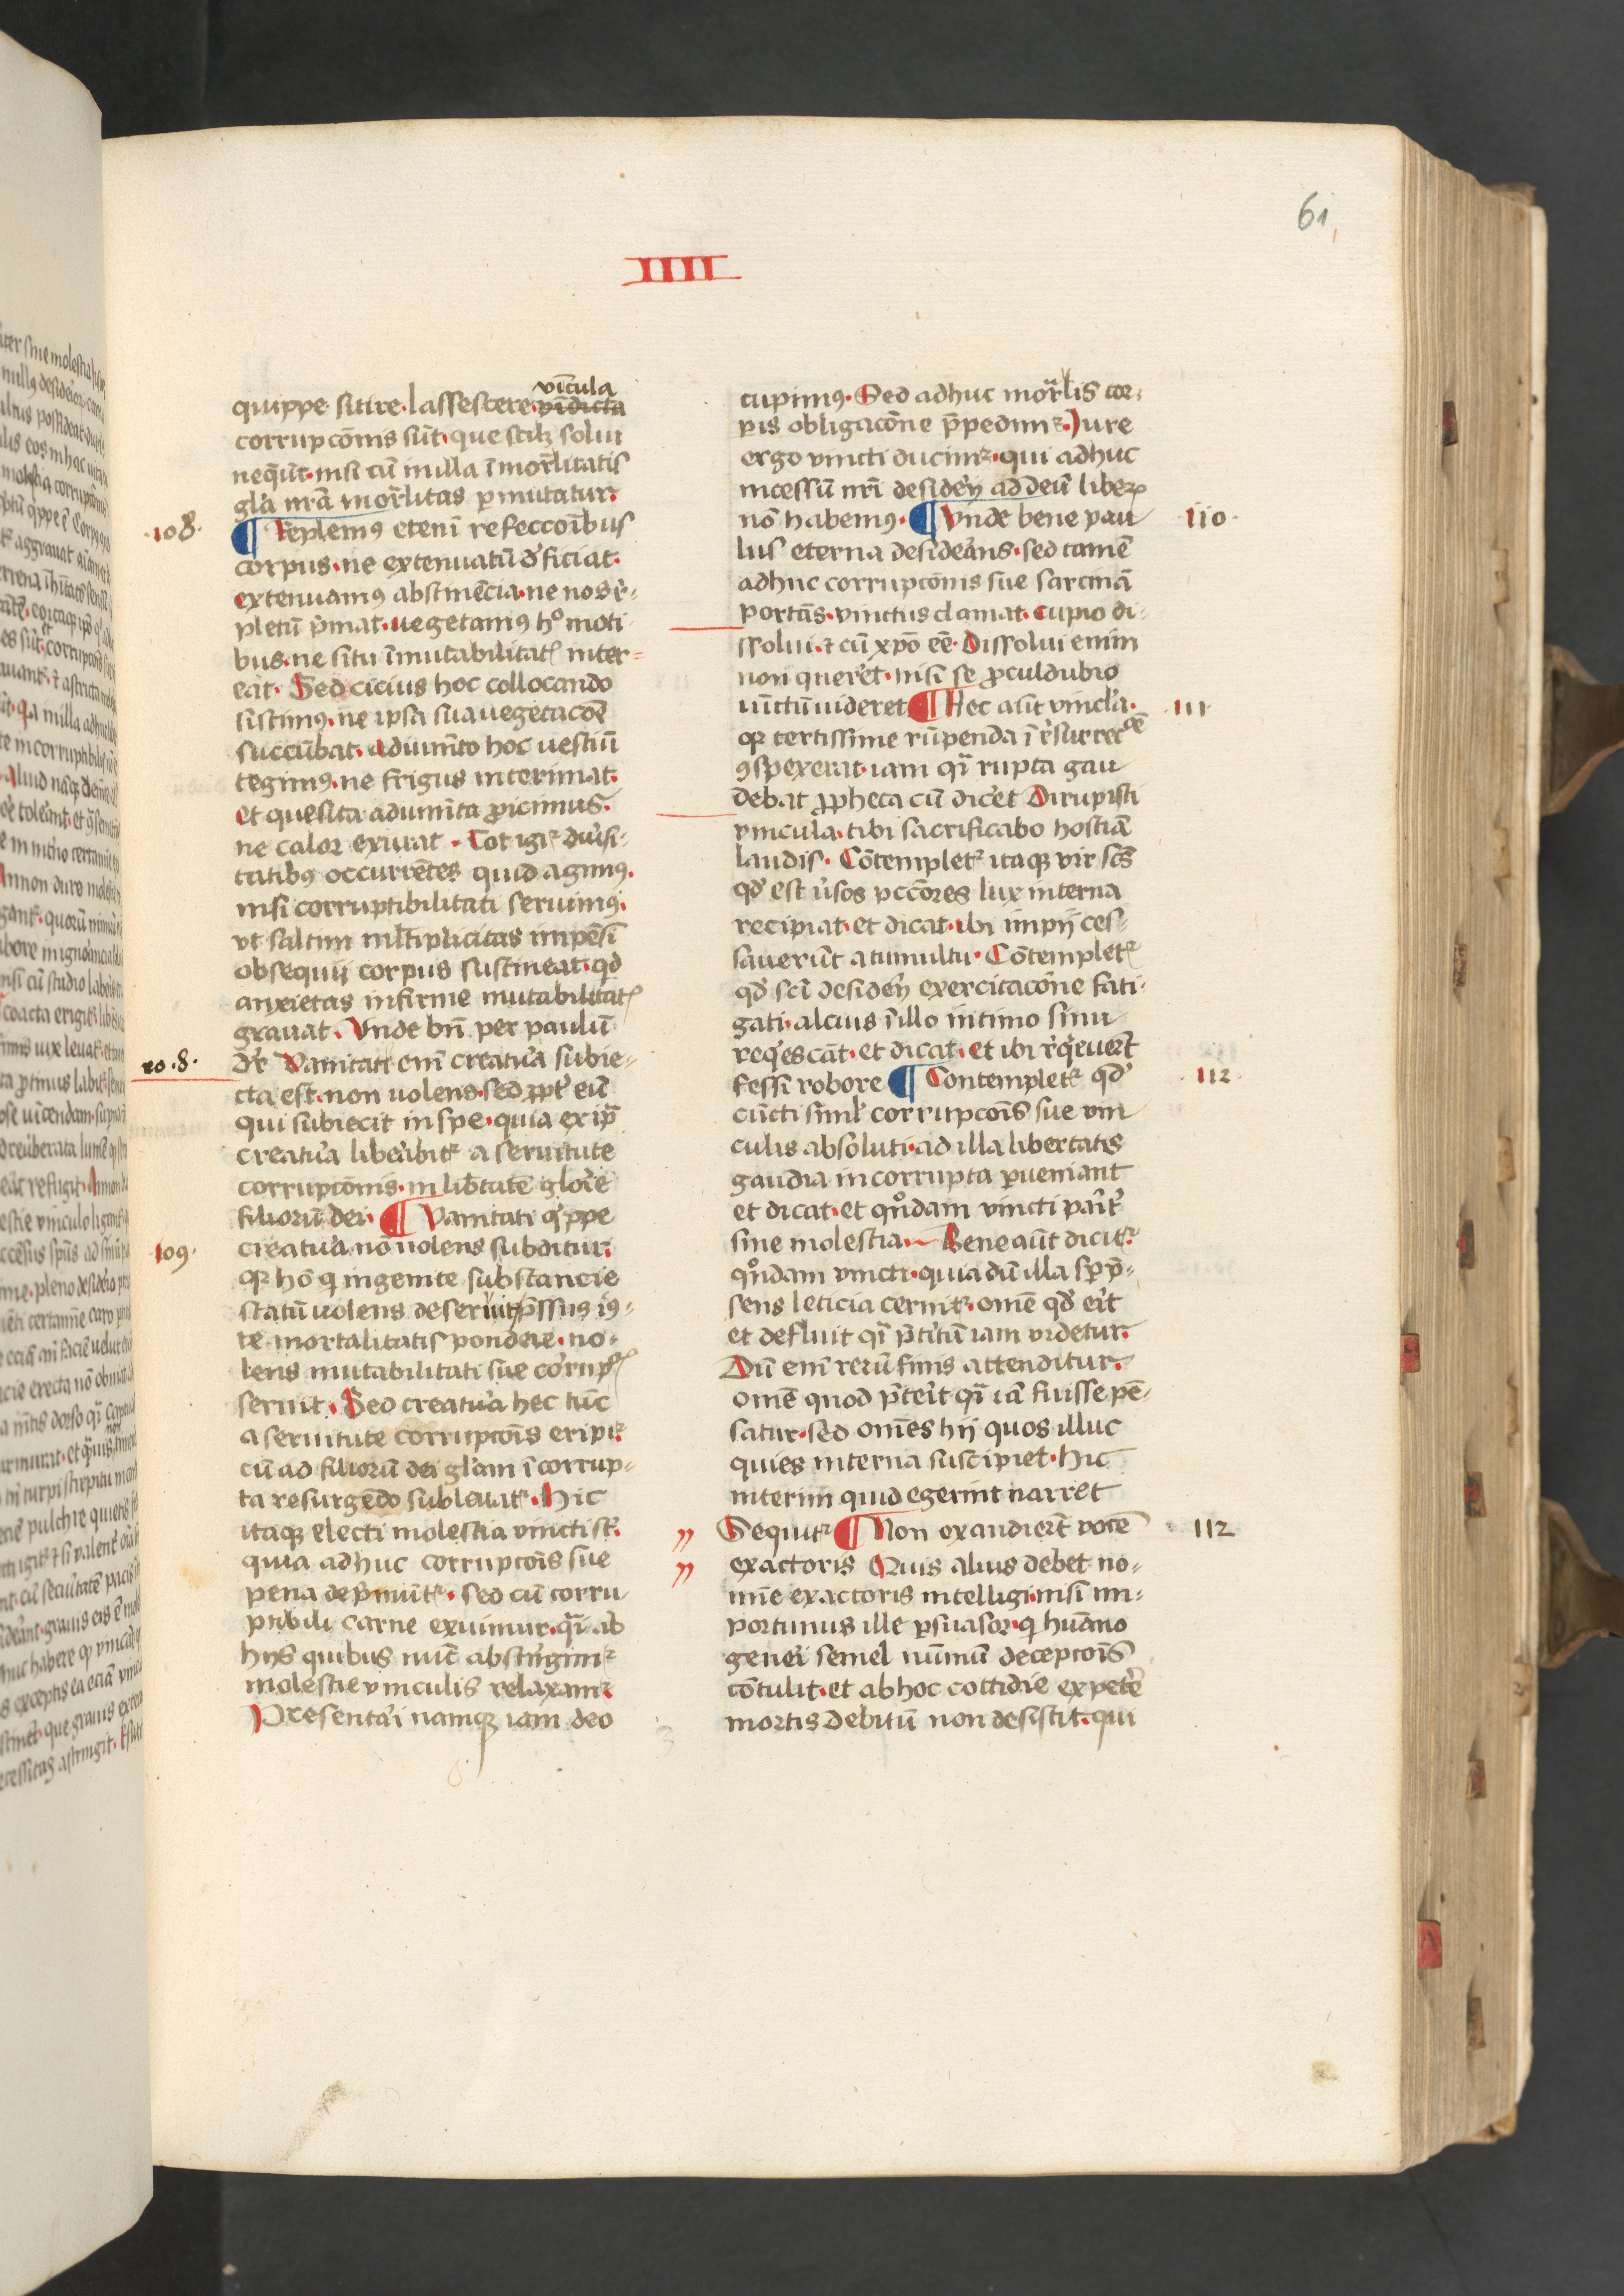 61
IIII
quippe sitire lassescere vīcula v̄idicta
corrupcōnis sūt que scilꝫ solui
neq̄ūt nisi cū in illa īmor̄litatis
glā nr̄a mor̄litas ꝑmutatur.
108. ¶ Replemꝰ etenī refeccōibus
corpus ne extenuatū dʼficiat.
extenuamꝰ abstinēcia ne nos rʼ-
pletū p̄mat. uegetamꝰ hͦ moti
bus ne situ īmutabilitatꝭ inter=
eat. Sed cicius hoc collocando
sistimꝰ ne ipsa sua uegetacōe
succūbat. adiumēto hoc uestiū
tegimꝰ ne frigus interimat.
et quesita adiumēta ꝓicimus
ne calor exurat. Tot igiʳ diuʼsi-
tatibꝰ occurrētes quid agimꝰ.
nisi corruptibilitati seruimꝰ.
vt saltim ml̄tiplicitas impēsi
obsequij corpus sustineat. qd̄
anxietas infirme mutabilitatꝭ
grauat. Vnde bn̄ per paulū
ro .8. dr̄ Vanitati enī creatuʼa subie-
cta est non uolens sed ꝓptʼ eū
qui subiecit in spe quia ex ip̄a
creatuʼa libeʼabitʳ a seruitute
corrupcōnis in libʼtatē gloʼie
filiorū dei. ¶ Vanitati qⁱppe
109. creatuʼa nō uolens subditur.
qꝛ hō q ingenite substancie
statū uolens deseruit p̄ssus iꝰ-
te mortalitatis pondere no-
lens mutabilitati sue corrupꝭ
seruit. Sed creatuʼa hec tūc
a seruitute corrupcōis eripiʳ
cū ad filiorū dei glʼam īcorrup-
ta resurgēdo subleuatʳ. Hic
itaqꝫ electi molestia vincti sʳ.
quia adhuc corrupcōis sue
pena dep̄muntʳ. sed cū corru
ptibili carne exuimur qⁱ ab
hijs quibus nūc abstrⁱngimʳ
molestie vinculis relaxamʳ
Presentaʼi namqꝫ iam deo
cupimꝰ. Sed adhuc mor̄lis cor-
pis obligacōne p̄pedimʳ. Jure
ergo vincti ducimʳ qui adhuc
incessū nr̄i desideʼij ad deū liberꝝ
nō habemꝰ. ¶ Vnde bene pau 110.
lus eterna desideʼans sed tamē
adhuc corrupcōnis sue sarcinā
portās vinctus clamat. cupio di-
ssolui ⁊ cū xp̄o eē. Dissolui enim
non quereʼt nisi se ꝓculdubio
uīctū uideret ¶ Hec alit vincla. 111
qꝛ certissime rūpenda ī rʼsurreccōe
ꝯspexerat iam qⁱ rupta gau
debat ꝓpheta cū diceʼt Dirupisti
vincula tibi sacrificabo hostiā
laudis. Cōtempletʳ itaqꝫ vir scs̄
qd̄ est uʼsos pccōres lux interna
recipiat et dicat ibi impij ces-
sauerūt a tumultu. Cōtempletʳ
qd̄ sci desideʼij exercitacōne fati-
gati alcius īillo intimo sinu
reqⁱescāt et dicat et ibi rʼqⁱeuerʼt
fessi robore ¶ Contempletʳ qd̄ 112.
cūcti siml̄ corrupcōis sue vin
culis absoluti ad illa libertatis
gaudia incorrupta ꝑueniant
et dicat et qͦndam vincti paʼitʼ
sine molestia. Bene aūt diciʳ
qͦndam vincti quia dū illa sp p̄-
sens leticia cernitʳ omē qd̄ eiʼt
et defluit qⁱ p̄tʼitū iam videtur.
Dū enī rerū finis attenditur.
omē quod p̄teiʼt qⁱ iā fuisse pē-
satur sed omēs hij quos illuc
quies interna suscipiet hic
interim quid egerint narret
Sequitʳ ¶ Non exaudierʼt vocē 112
exactoris Quis alius debet no-
mīe exactoris intelligi nisi im-
portunus ille ꝑsuasor q huāno
geneʼi semel nūmū decepcōis
cōtulit et ab hoc cottidie expeteʼ
mortis debitū non desistit qui